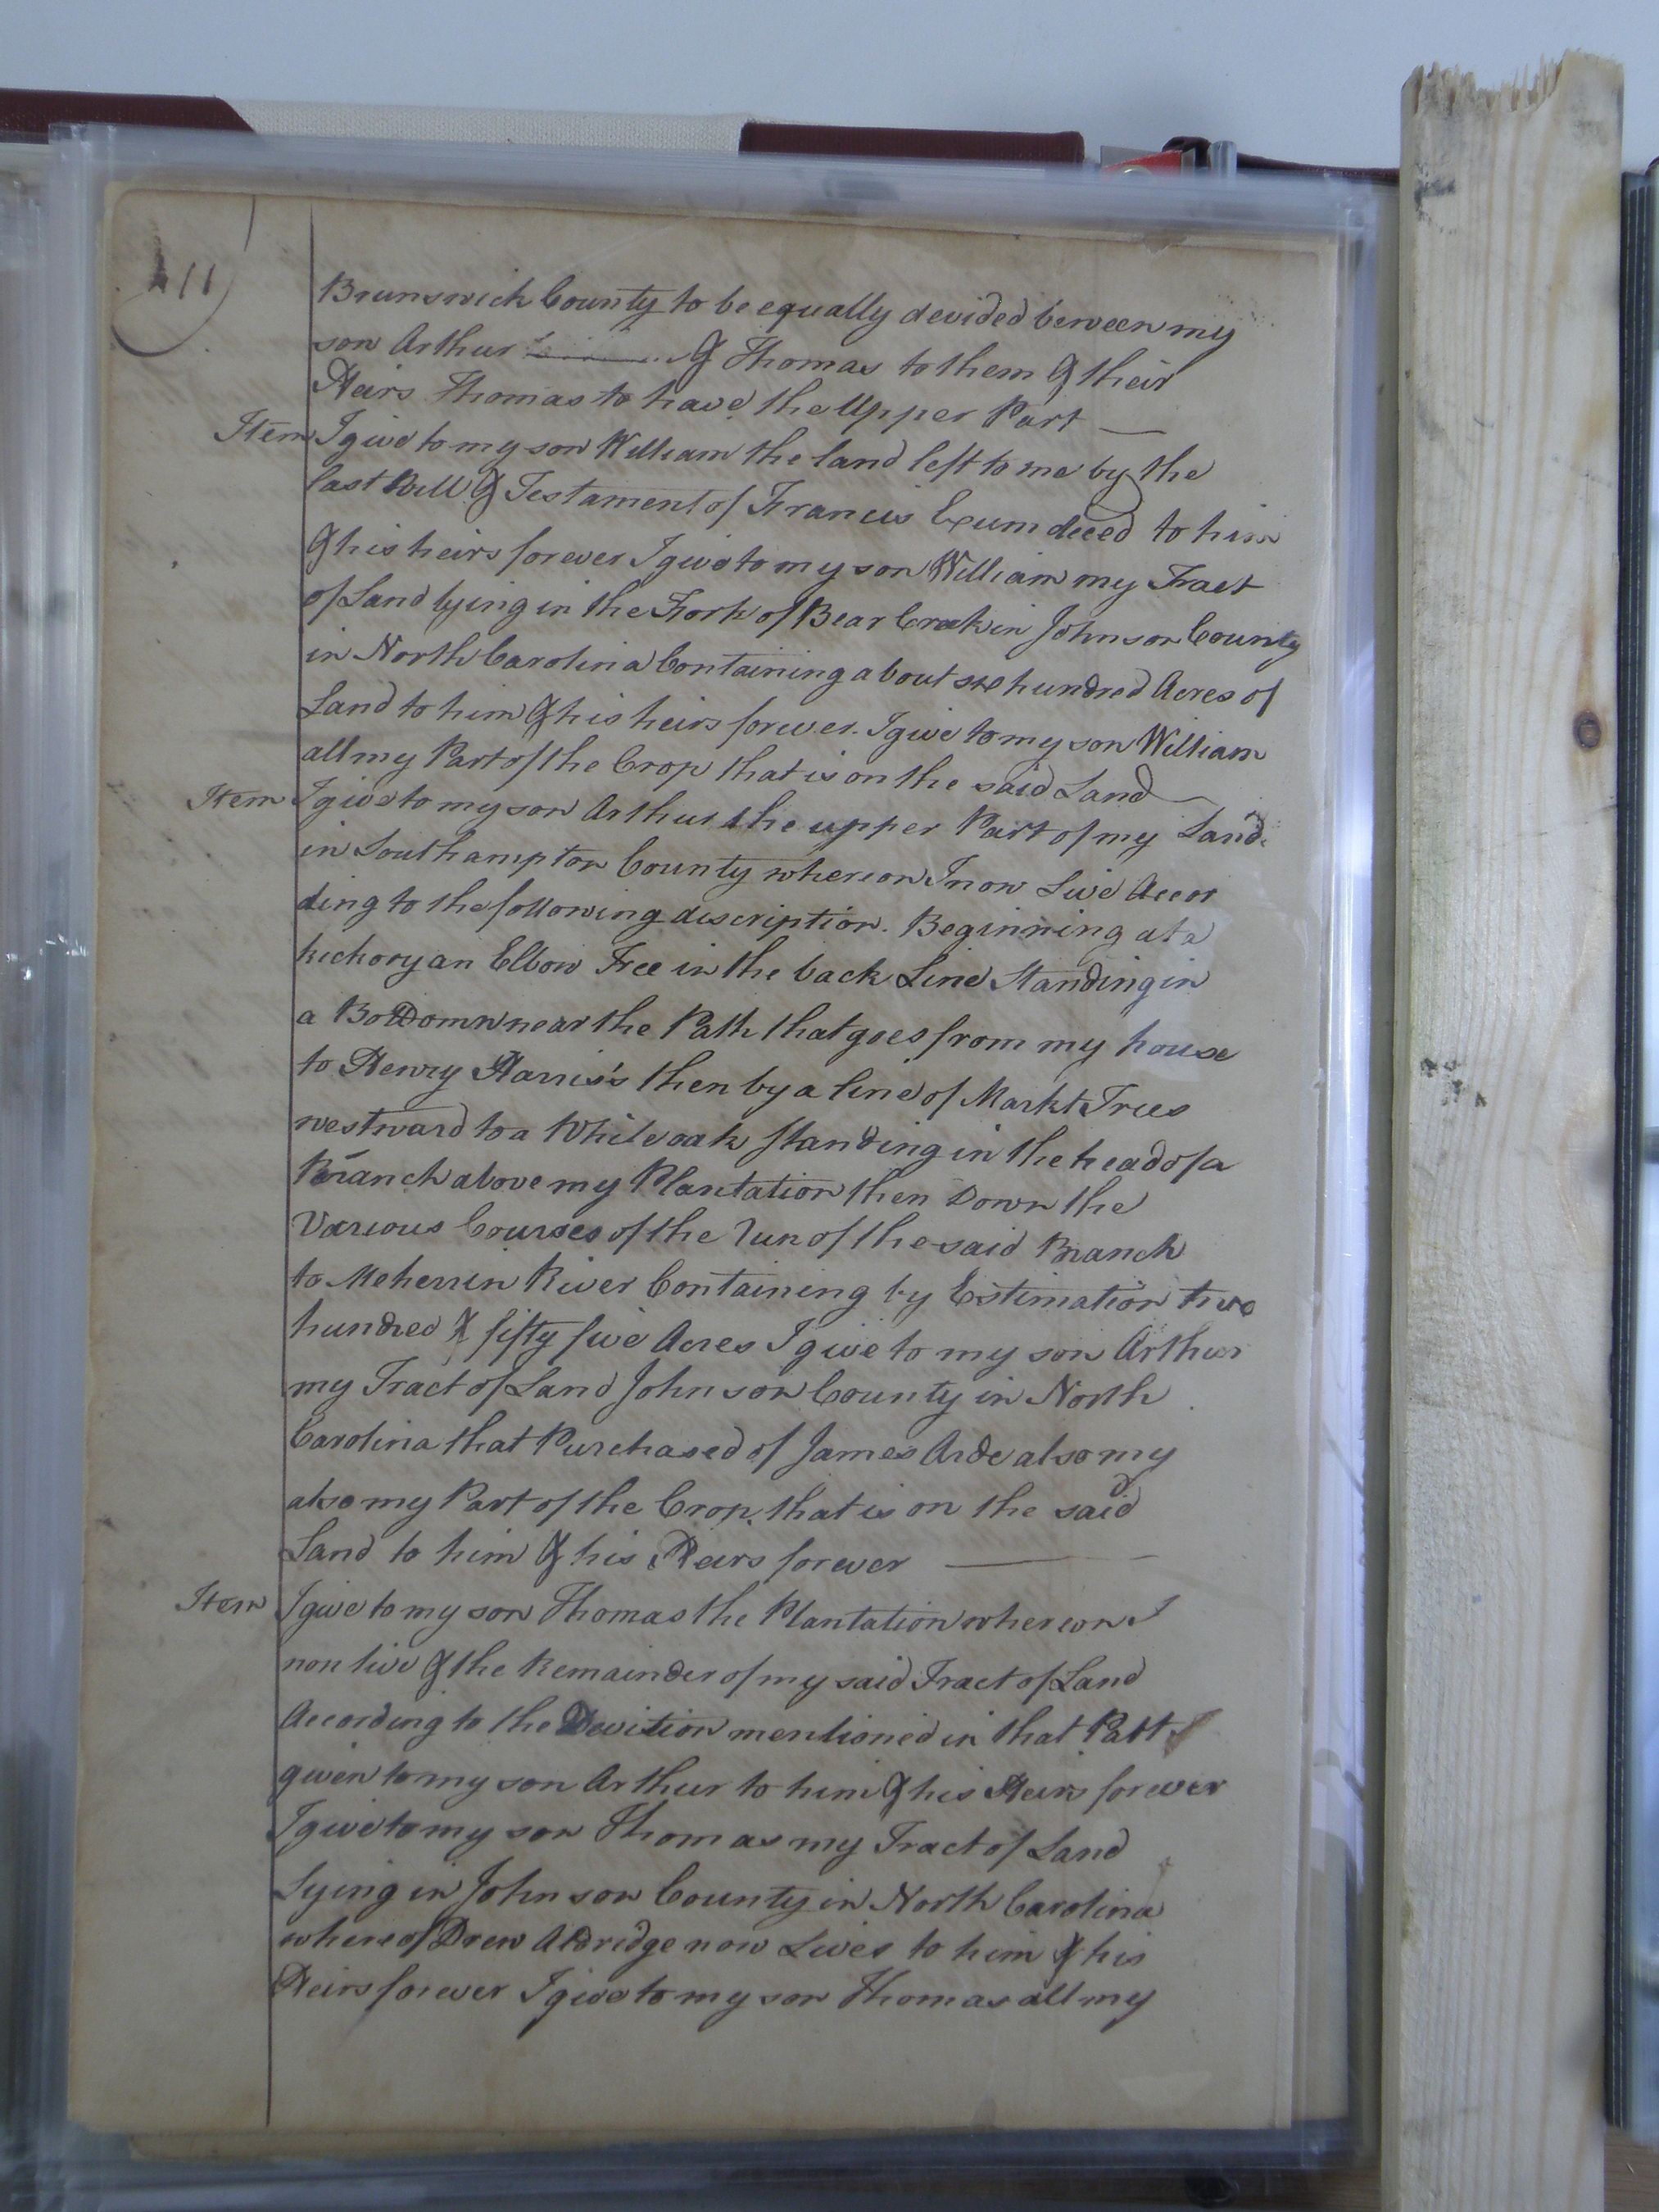 411
Brunswick County to be equally devided between my
son Arthur & Thomas to them & their
Heirs Thomas to have the Upper Part
Item I give to my son William the land left to me by the
last Will & Testament of Francis Exum deced to him
& his heirs forever I give to my son William my Tract
of Land lying in the Fork of Bear Creek in Johnson County
in North Carolina Containing about six hundred Acres of
Land to him & his heirs forever. I give to my son William
all my Part of the Crop that is on the said Land
Item I give to my son Arthur the upper Part of my Land
in Southampton County whereon I now Live Accor
ding to the following discription. Beginning at a
hickory an Elbow Tree in the back Line Standing in
a Bottom near the Path that goes from my house
to Henry Harris's then by a line of Markt Trees
westward to a White oak standing in the head of a
Branch above my Plantation then Down the
Various Courses of the Run of the said Branch
to Meherrin River Containing by Estimation two
hundred & fifty five Acres I give to my son Arthur
my Tract of Land Johnson County in North
Carolina that Purchased of James Arde also my
also my Part of the Crop that is on the said
Land to him & his Heirs forever
Item I give to my son Thomas the Plantation whereon I
now live & the Remainder of my said Tract of Land
According to the Devition mentioned in that Part
given to my son Arthur to him & his Heirs forever
I give to my son Thomas my Tract of Land
Lying in Johnson County in North Carolina
whereof Drew Aldridge now Lives to him & his
Heirs forever I give to my son Thomas all my